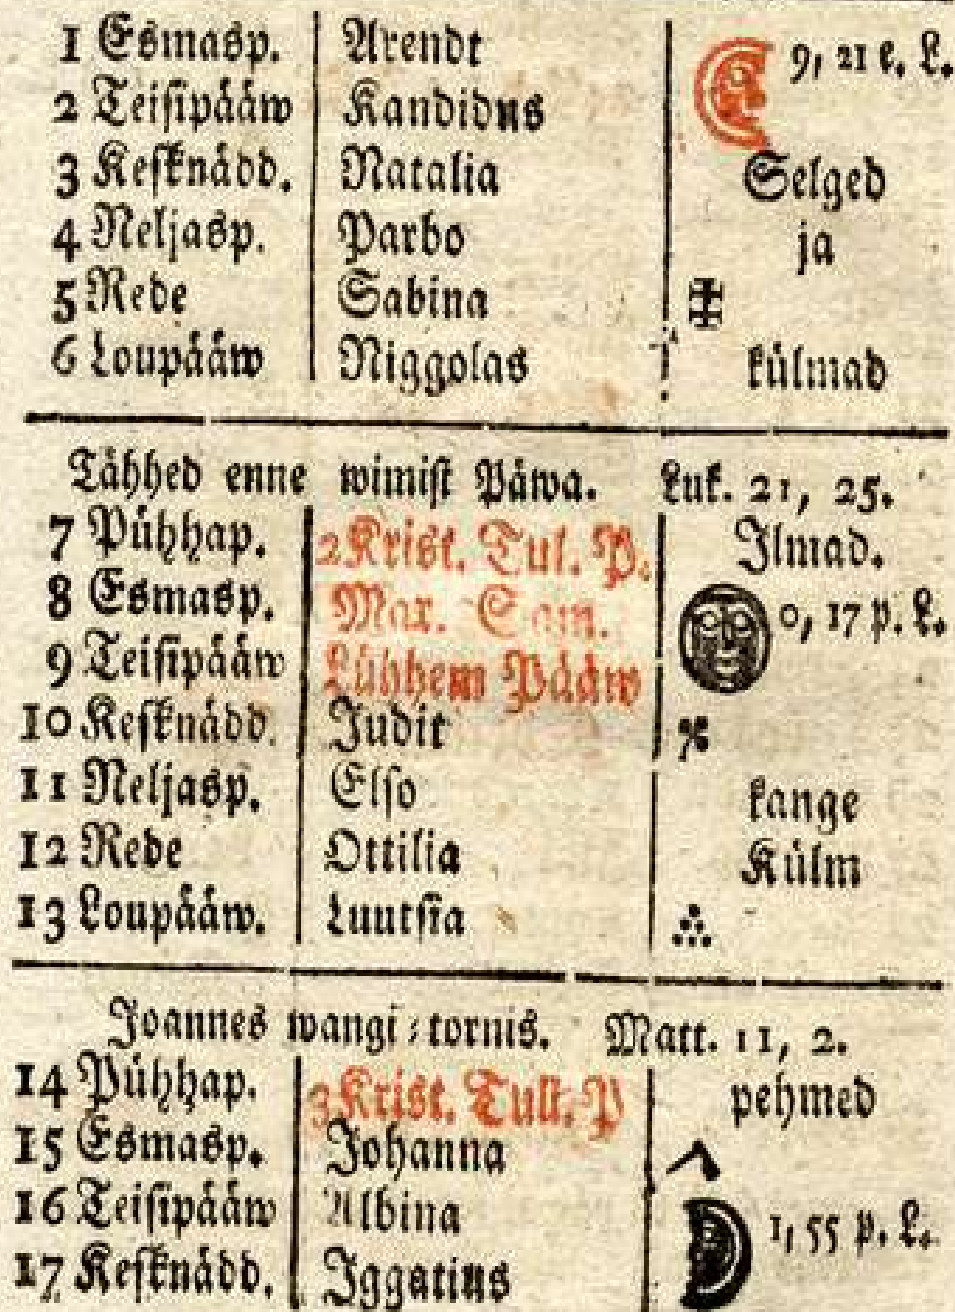 1 Esmasp. Arendt 9, 21 e. L.
2 Teisipääw Kandidus
3 Kesknädd. Natalia Selged
4 Neljasp. Parbo ja
5 Rede Sabina
6 Loupääw Niggolas külmad
Tähhed enne wimist Päwa. Luk. 21, 25.
7 Pühhap. 2 Krist. Tul. P. Ilmad.
8 Esmasp. Mar. Sam. 0, 17 p. L.
9 Teisipääw Lühhem Pääw
10 Kesknädd. Judit
11 Neljasp. Elso kange
12 Rede Ottilia Külm
13 Loupääw. Luutsia
Joannes wangi-tornis. Matt. 11, 2.
14 Pühhap. 3 Krist. Tull. P pehmed
15 Esmasp. Johanna
16 Teisipääw Albina 1, 55 p. L.
17 Kesknädd. Iggatius